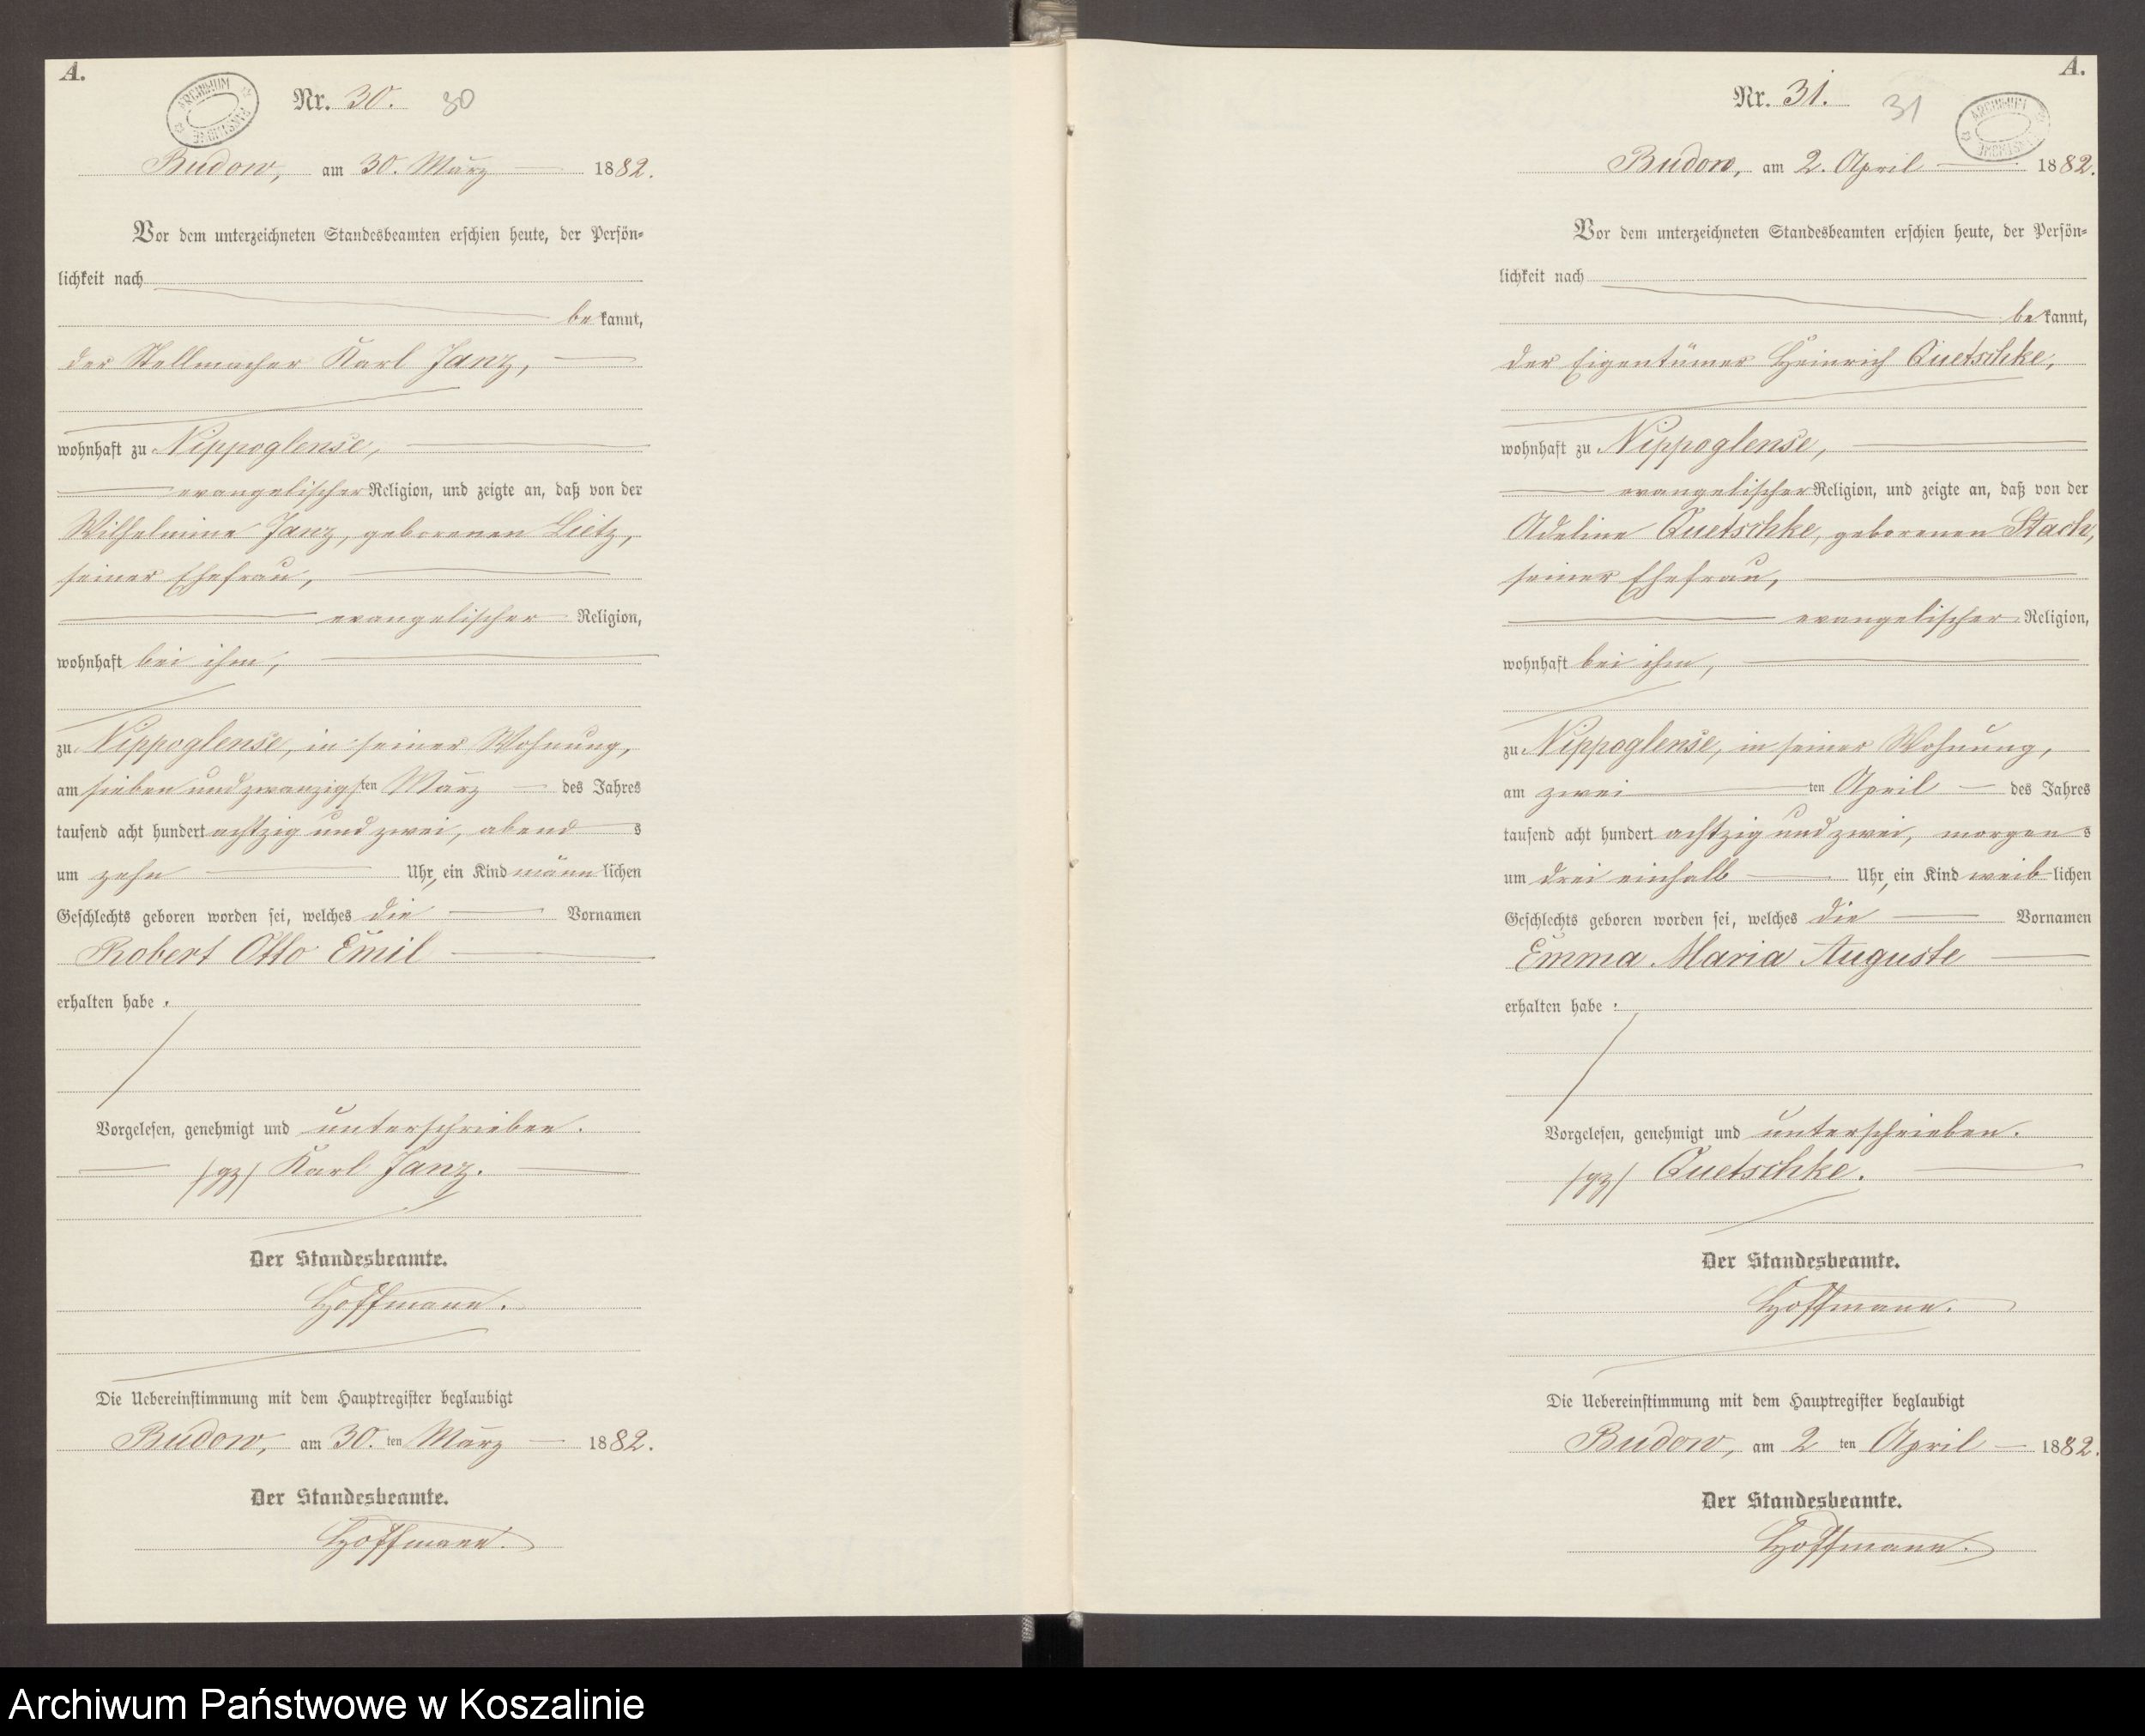 A.
ARCHIWUM PAŃSTWOWE
Nr. 30. 30
Budow, am 30. März 1882.
Vor dem unterzeichneten Standesbeamten erschien heute, der Persön-
lichkeit nach
be kannt,
der Stellmacher Karl Janz,
wohnhaft zu Nippoglense,
evangelischer Religion, und zeigte an, daß von der
Wilhelmine Janz, geborenen Lietz,
seiner Ehefrau,
evangelischer Religion,
wohnhaft bei ihm,
zu Nippoglense, in seiner Wohnung,
am sieben und zwanzigsten März des Jahres
tausend acht hundert achtzig und zwei, abends
um zehn Uhr, ein Kind männlichen
Geschlechts geboren worden sei, welches die Vornamen
Robert Otto Emil
erhalten habe.
Vorgelesen, genehmigt und unterschrieben.
/gz/ Karl Janz.
Der Standesbeamte.
Hoffmann.
Die Uebereinstimmung mit dem Hauptregister beglaubigt
Budow, am 30. ten März 1882.
Der Standesbeamte.
Hoffmann.
A.
ARCHIWUM PAŃSTWOWE
Nr. 31. 31
Budow, am 2. April 1882.
Vor dem unterzeichneten Standesbeamten erschien heute, der Persön-
lichkeit nach
be kannt,
der Eigentümer Heinrich Quetschke,
wohnhaft zu Nippoglense,
evangelischer Religion, und zeigte an, daß von der
Adeline Quetschke, geborenen Stach,
seiner Ehefrau,
evangelischer Religion,
wohnhaft bei ihm,
zu Nippoglense, in seiner Wohnung,
am zwei ten April des Jahres
tausend acht hundert achtzig und zwei, morgens
um drei einhalb Uhr, ein Kind weiblichen
Geschlechts geboren worden sei, welches die Vornamen
Emma Maria Auguste
erhalten habe.
Vorgelesen, genehmigt und unterschrieben.
/gz/ Quetschke.
Der Standesbeamte.
Hoffmann.
Die Uebereinstimmung mit dem Hauptregister beglaubigt
Budow, am 2 ten April 1882.
Der Standesbeamte.
Hoffmann.
Archiwum Państwowe w Koszalinie